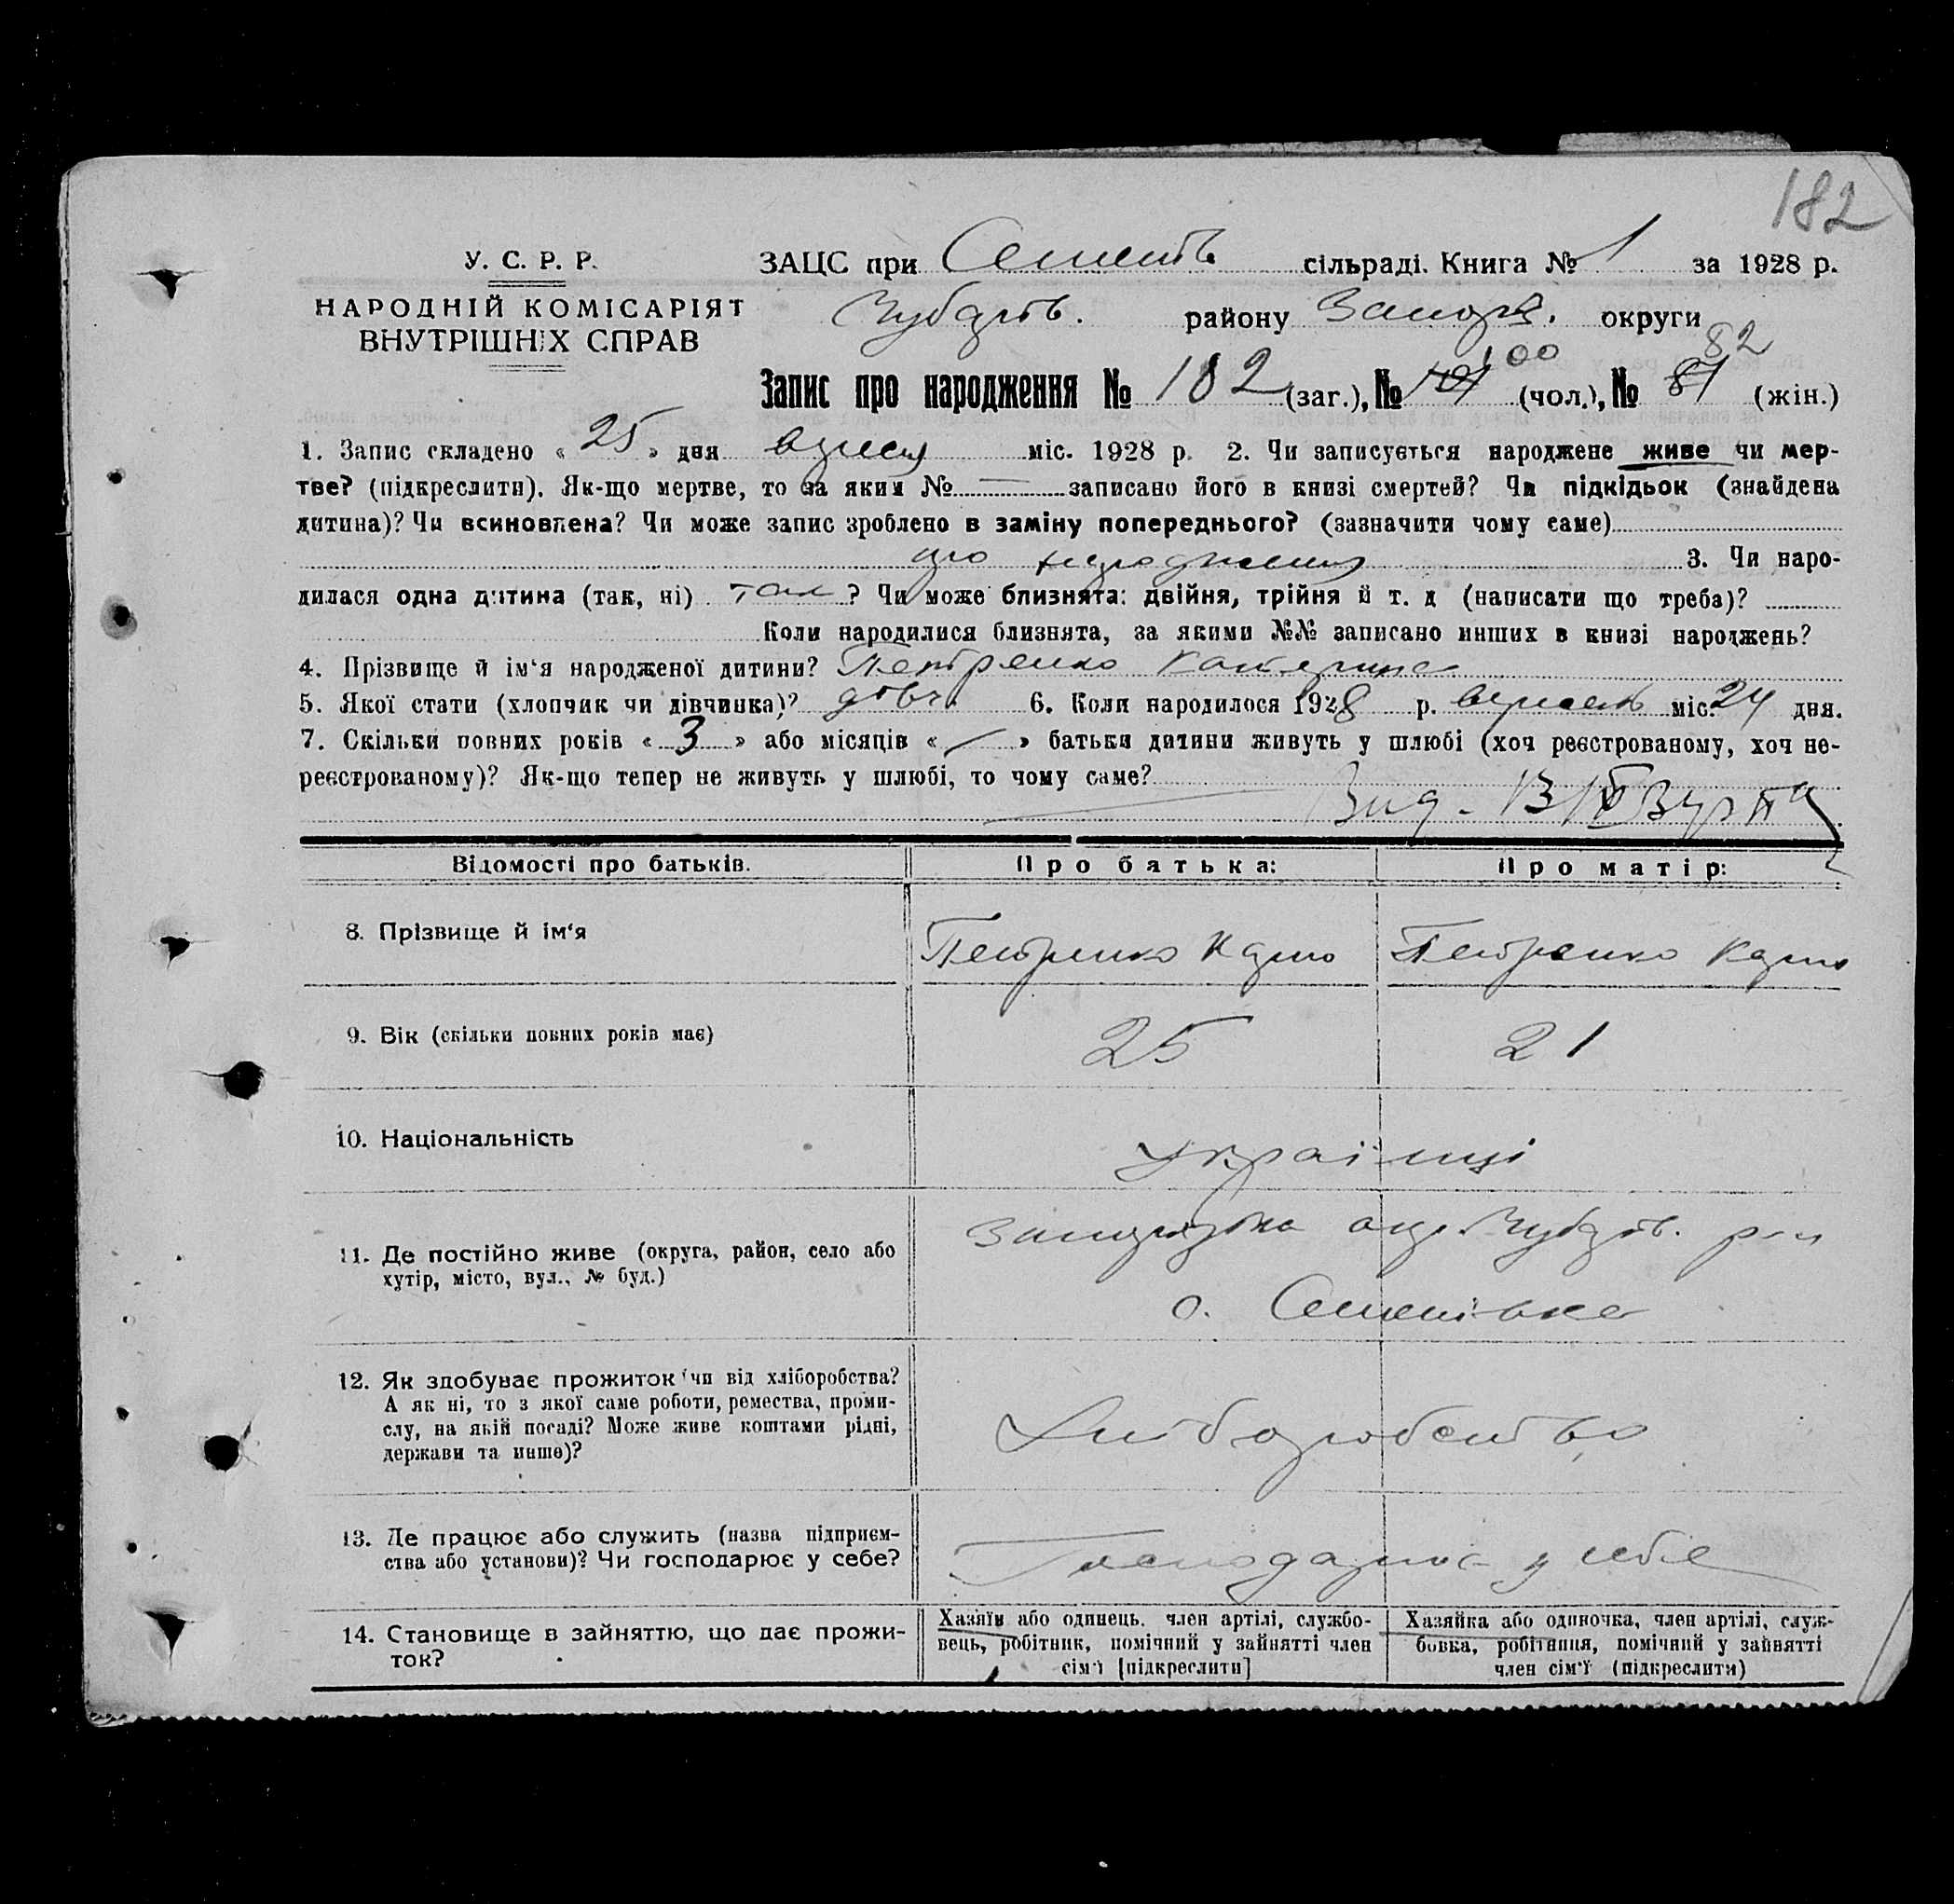 182
У. С. Р. Р.
НАРОДНІЙ КОМІСАРІЯТ
ВНУТРІШНІХ СПРАВ
ЗАЦС при Семенів. сільраді. Книга № 1 за 1928 р.
Чубарів. району Запоріз. округи
100 82
Запис про народження № 182 (заг.), № 101 (чол.), № 81 (жін.)
1. Запис складено « 25 » дня вересня міс. 1928 р. 2. Чи записується народжене живе чи мер-
тве? (підкреслити). Як-що мертве, то за яким № — записано його в книзі смертей? Чи підкідьок (знайдена
дитина)? Чи всиновлена? Чи може запис зроблено в заміну попереднього? (зазначити чому саме)
про народження 3. Чи наро-
дилася одна дитина (так, ні) так ? Чи може близнята: двійня, трійня й т. д (написати що треба)?
Коли народилися близнята, за якими №№ записано инших в книзі народжень?
4. Прізвище й ім‘я народженої дитини? Петренко Катерина
5. Якої стати (хлопчик чи дівчинка)? дівч. 6. Коли народилося 1928 р. вересень міс. 24 дня.
7. Скільки повних років « 3 » або місяців « — » батьки дитини живуть у шлюбі (хоч реєстрованому, хоч не-
реєстрованому)? Як-що тепер не живуть у шлюбі, то чому саме?
Відомості про батьків. Про батька: Про матір:
8. Прізвище й ім‘я Петренко Петренко
9. Вік (скільки повних років має) 25 21
10. Національність українці
11. Де постійно живе (округа, район, село або
хутір, місто, вул., № буд.)
Запорізька окр. Чубарів. р-н
с. Семенівка
12. Як здобуває прожиток чи від хліборобства?
А як ні, то з якої саме роботи, ремества, проми-
слу, на якій посаді? Може живе коштами рідні,
держави та инше)?
Хліборобство
13. Де працює або служить (назва підприєм-
ства або установи)? Чи господарює у себе?
Господарює у себе
14. Становище в зайняттю, що дає прожи-
ток?
Хазяїн або одинець. член артілі, службо-
вець, робітник, помічний у зайнятті член
сім‘ї [підкреслити]
Хазяйка або одиночка, член артілі, служ-
бовка, робітниця, помічний у зайнятті
член сім‘ї (підкреслити)